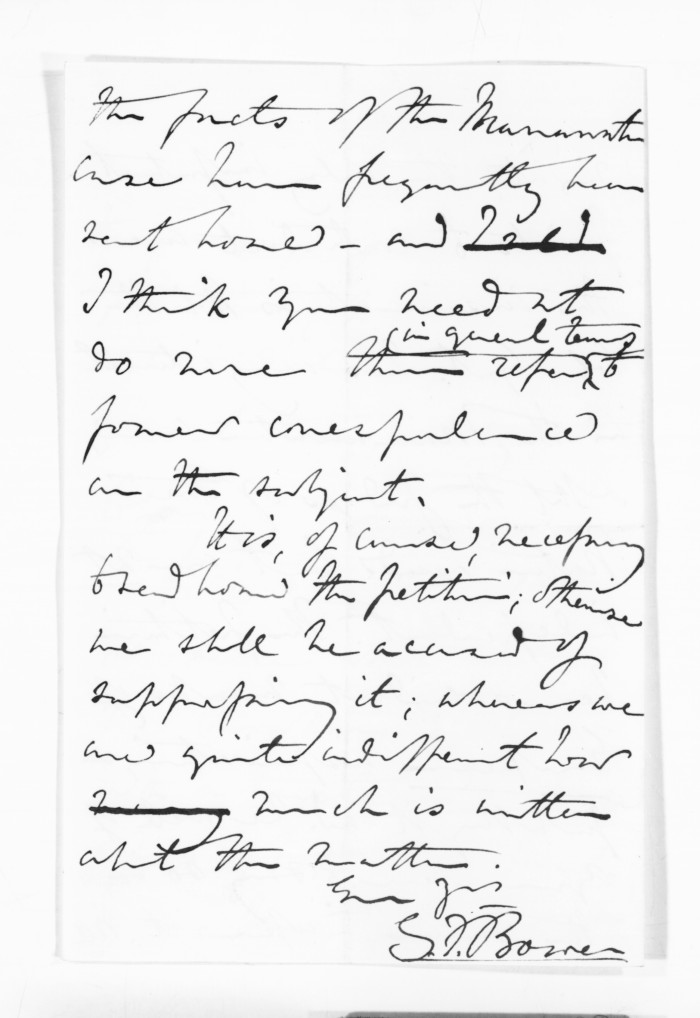 the facts of the Manawatu
case have frequently been
sent home – and
I think you need not
(in general terms)
do more than refer to
former correspondence
on the subject.
It is, of course, necessary
to send home the petition; otherwise
we shall be accused of
suppressing it; whereas we
are quite indifferent how
many much is written
about the matter.
Ever Yrs
G.F. Bowen